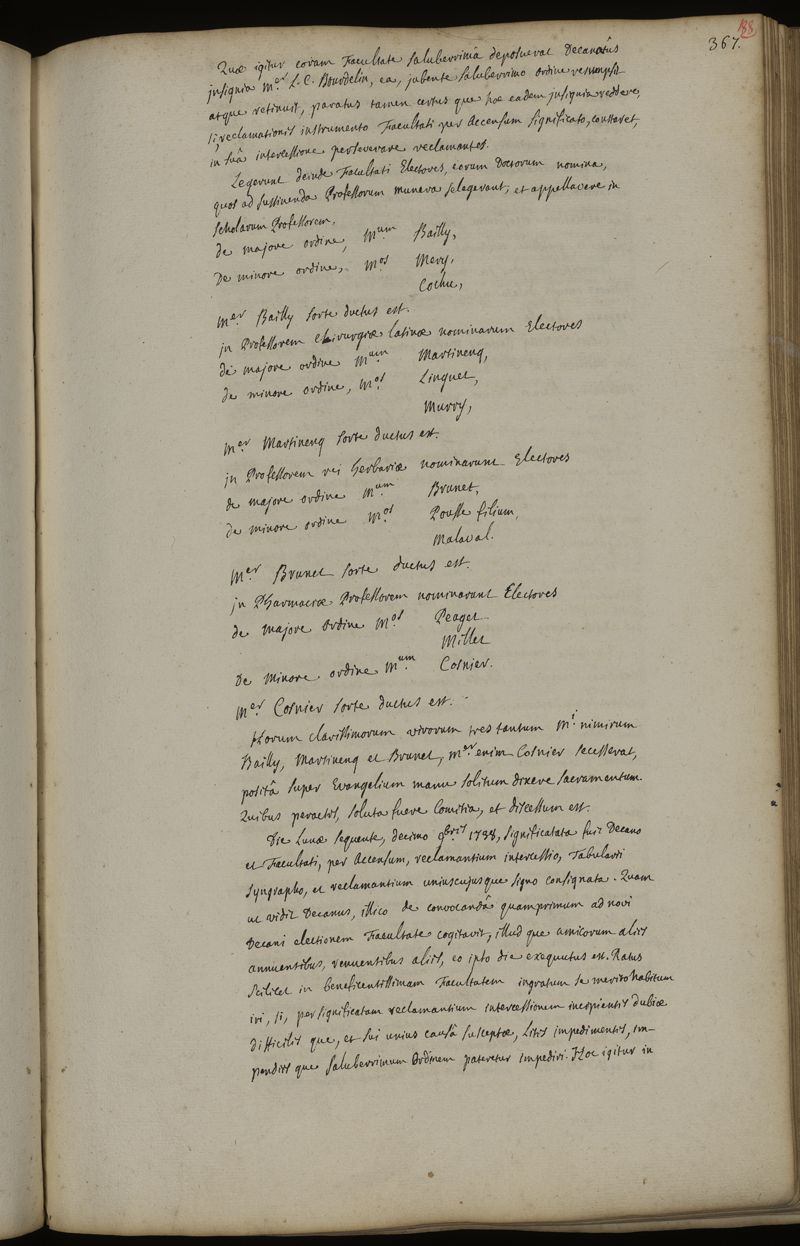 188
367.
Quæ igitur coram Facultate saluberrimâ deposuerat Decanatûs
jnsignia M.er L. C. Bourdelin, ea, jubente saluberrimo ordine resumpsit
atque retinuit, paratus tamen certus que hæc eadem jnsignia reddere,
si reclamationis instrumento Facultati per Accensum significato, constaret,
in suâ intercessione perseverare reclamantes.
Legerunt deinde Facultati Electores, eorum Doctorum nomina,
quos ad sustinenda Professorum munera selegerant, et appellavere in
scholarum Professorem,
de majore ordine, M.um Bailly,
De minore ordine, M.os Mery,
Cochu,
M.er Bailly sorte ductus est.
jn Professorem chirurgiæ latinæ nominarunt Electores
de majore ordine M.um Martinenq,
de minore ordine, M.os Linguet,
Murry,
M.er Martinenq sorte ductus est.
jn Professorem rei herbariæ nominarunt Electores
de majore ordine M.um Brunet,
de minore ordine M.os Pousse filium,
Malaval.
M.er Brunet sorte ductus est.
jn Pharmaciæ Professorem nominarunt Electores
de majore ordine M.os Peaget
Millet
De minore ordine M.um Cosnier.
M.er Cosnier sorte ductus est.
htorum clarissimorum virorum tres tantum M.i nimirum
Bailly, Martinenq et Brunet, M.er enim Cosnier secesserat,
positâ super Evangelium manu solitum dixere sacramentum.
Quibus peractis, soluta fuere Comitia, et discessum est.
Die Lunæ sequente, decimo 9.bris 1738, significata fuit Decano
et Facultati, per Accensum, reclamantium intercessio, Tabularii
syngrapho, et reclamantium uniuscujusque signo consignata. Quam
ut vidit Decanus, illico de convocandâ quamprimum ad novi
Decani electionem Facultate cogitavit, illud que amicorum aliis
annuentibus, renuentibus aliis, eo ipso die exequutus est. Ratus
scilicet in beneficentissimam Facultatem ingratum se merito habitum
iri, si, per significatam reclamantium intercessionem incipientis dubiæ
difficilis que, et sui unius causâ susceptæ, Litis impedimentis, im-
pendiis que saluberrimum ordinem pateretur impediri. Hoc igitur in